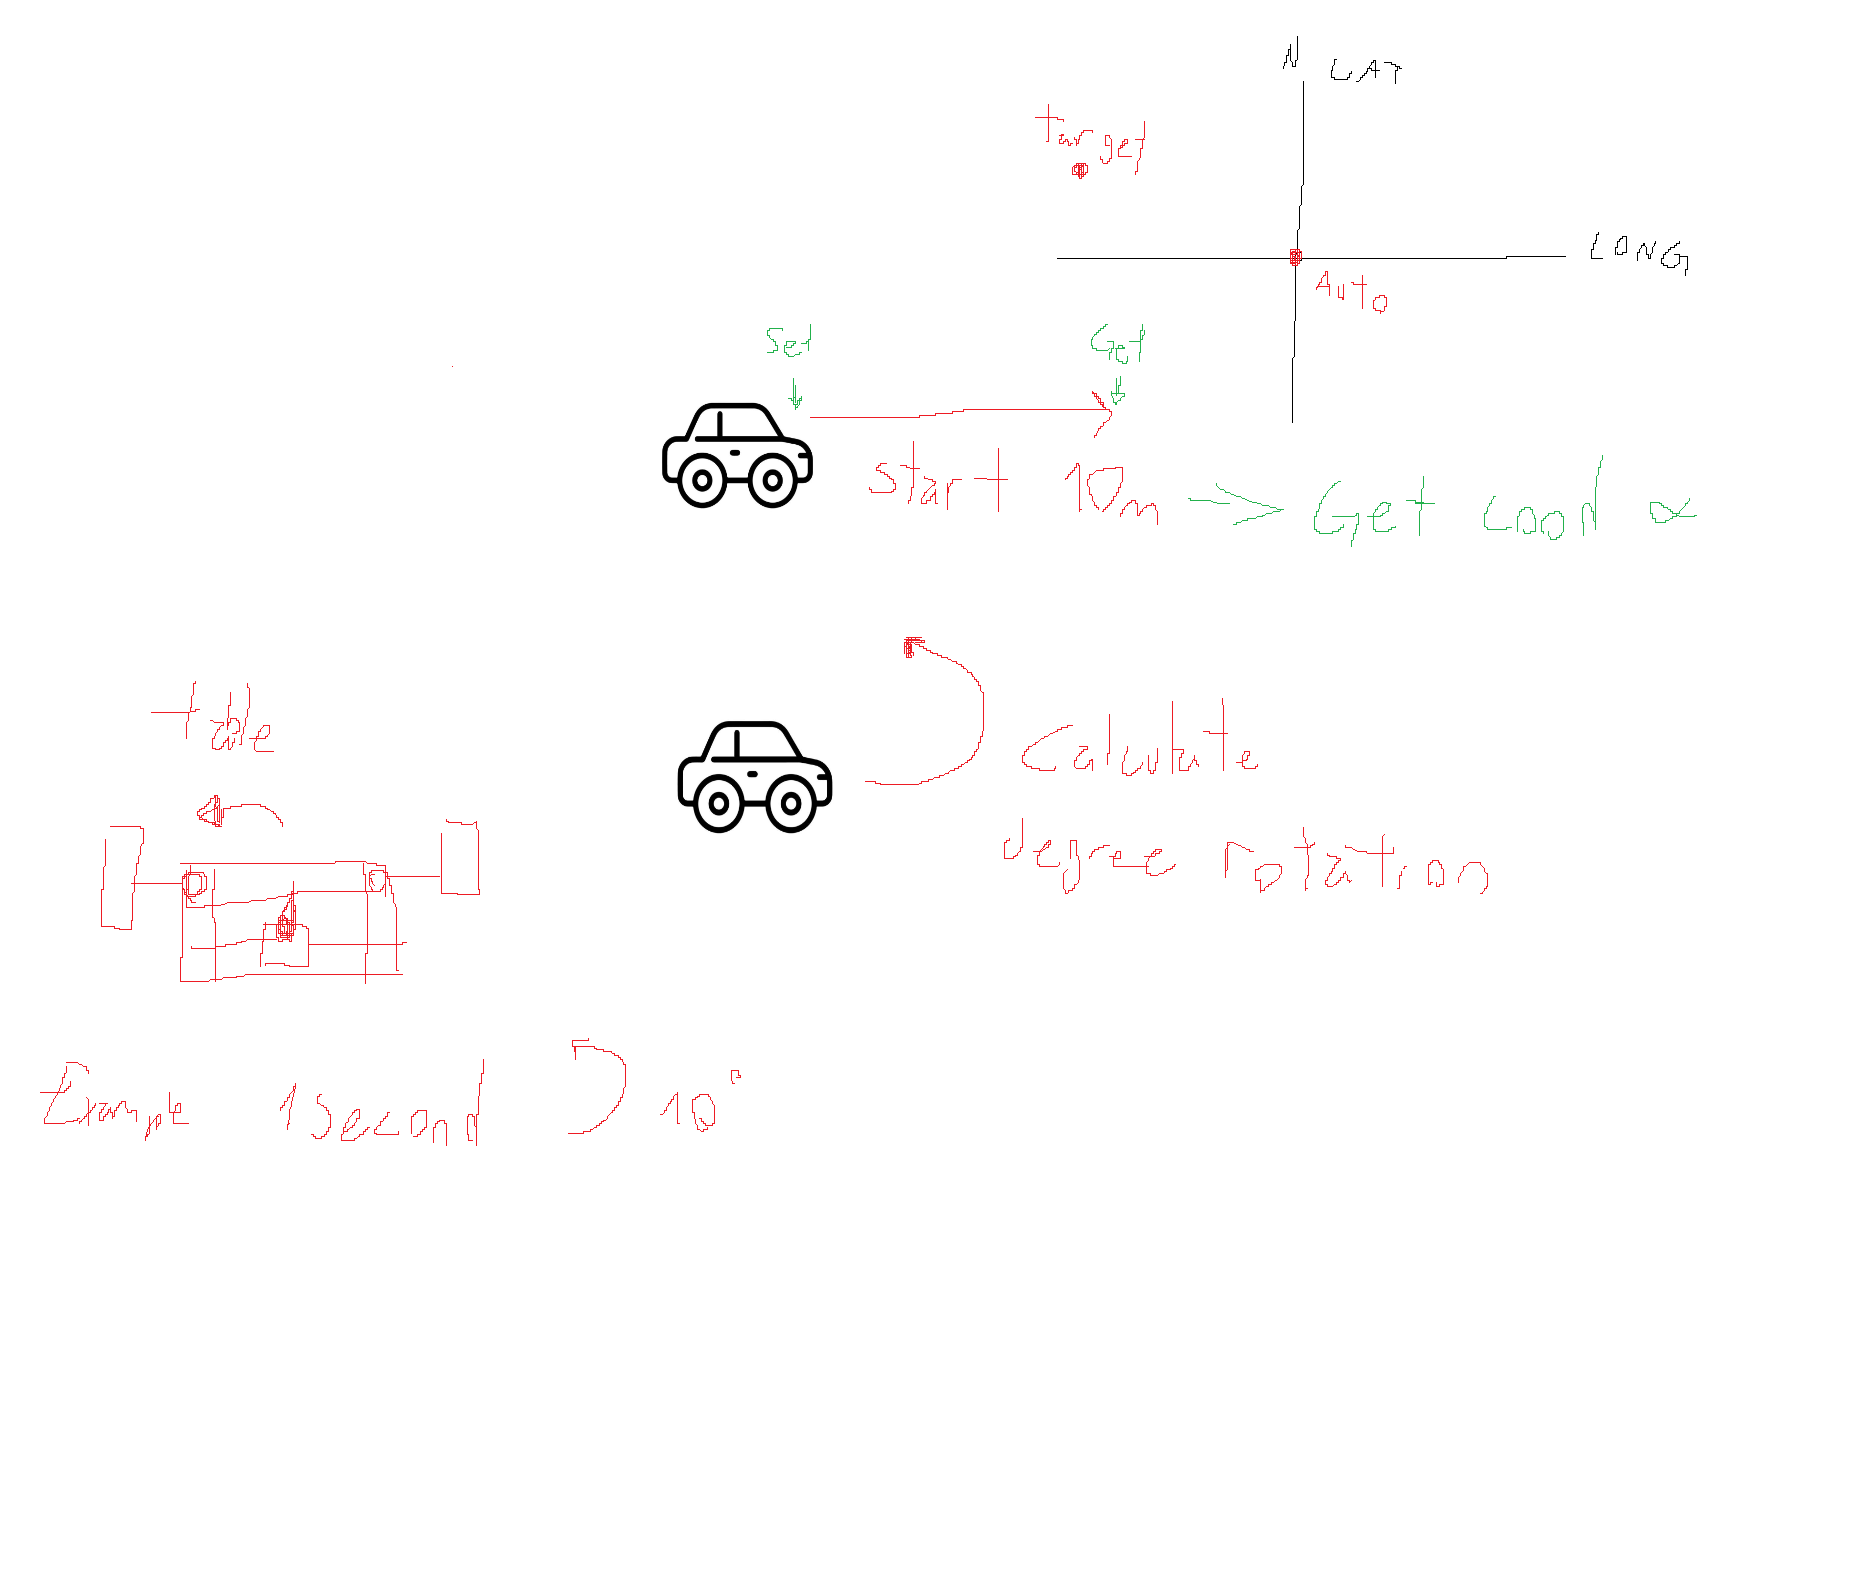 N LAT
target
LONG
Auto
Set
Get
Start 10m
Get Cood α
table
Calculate
degree rotation
Example 1 Second 10°